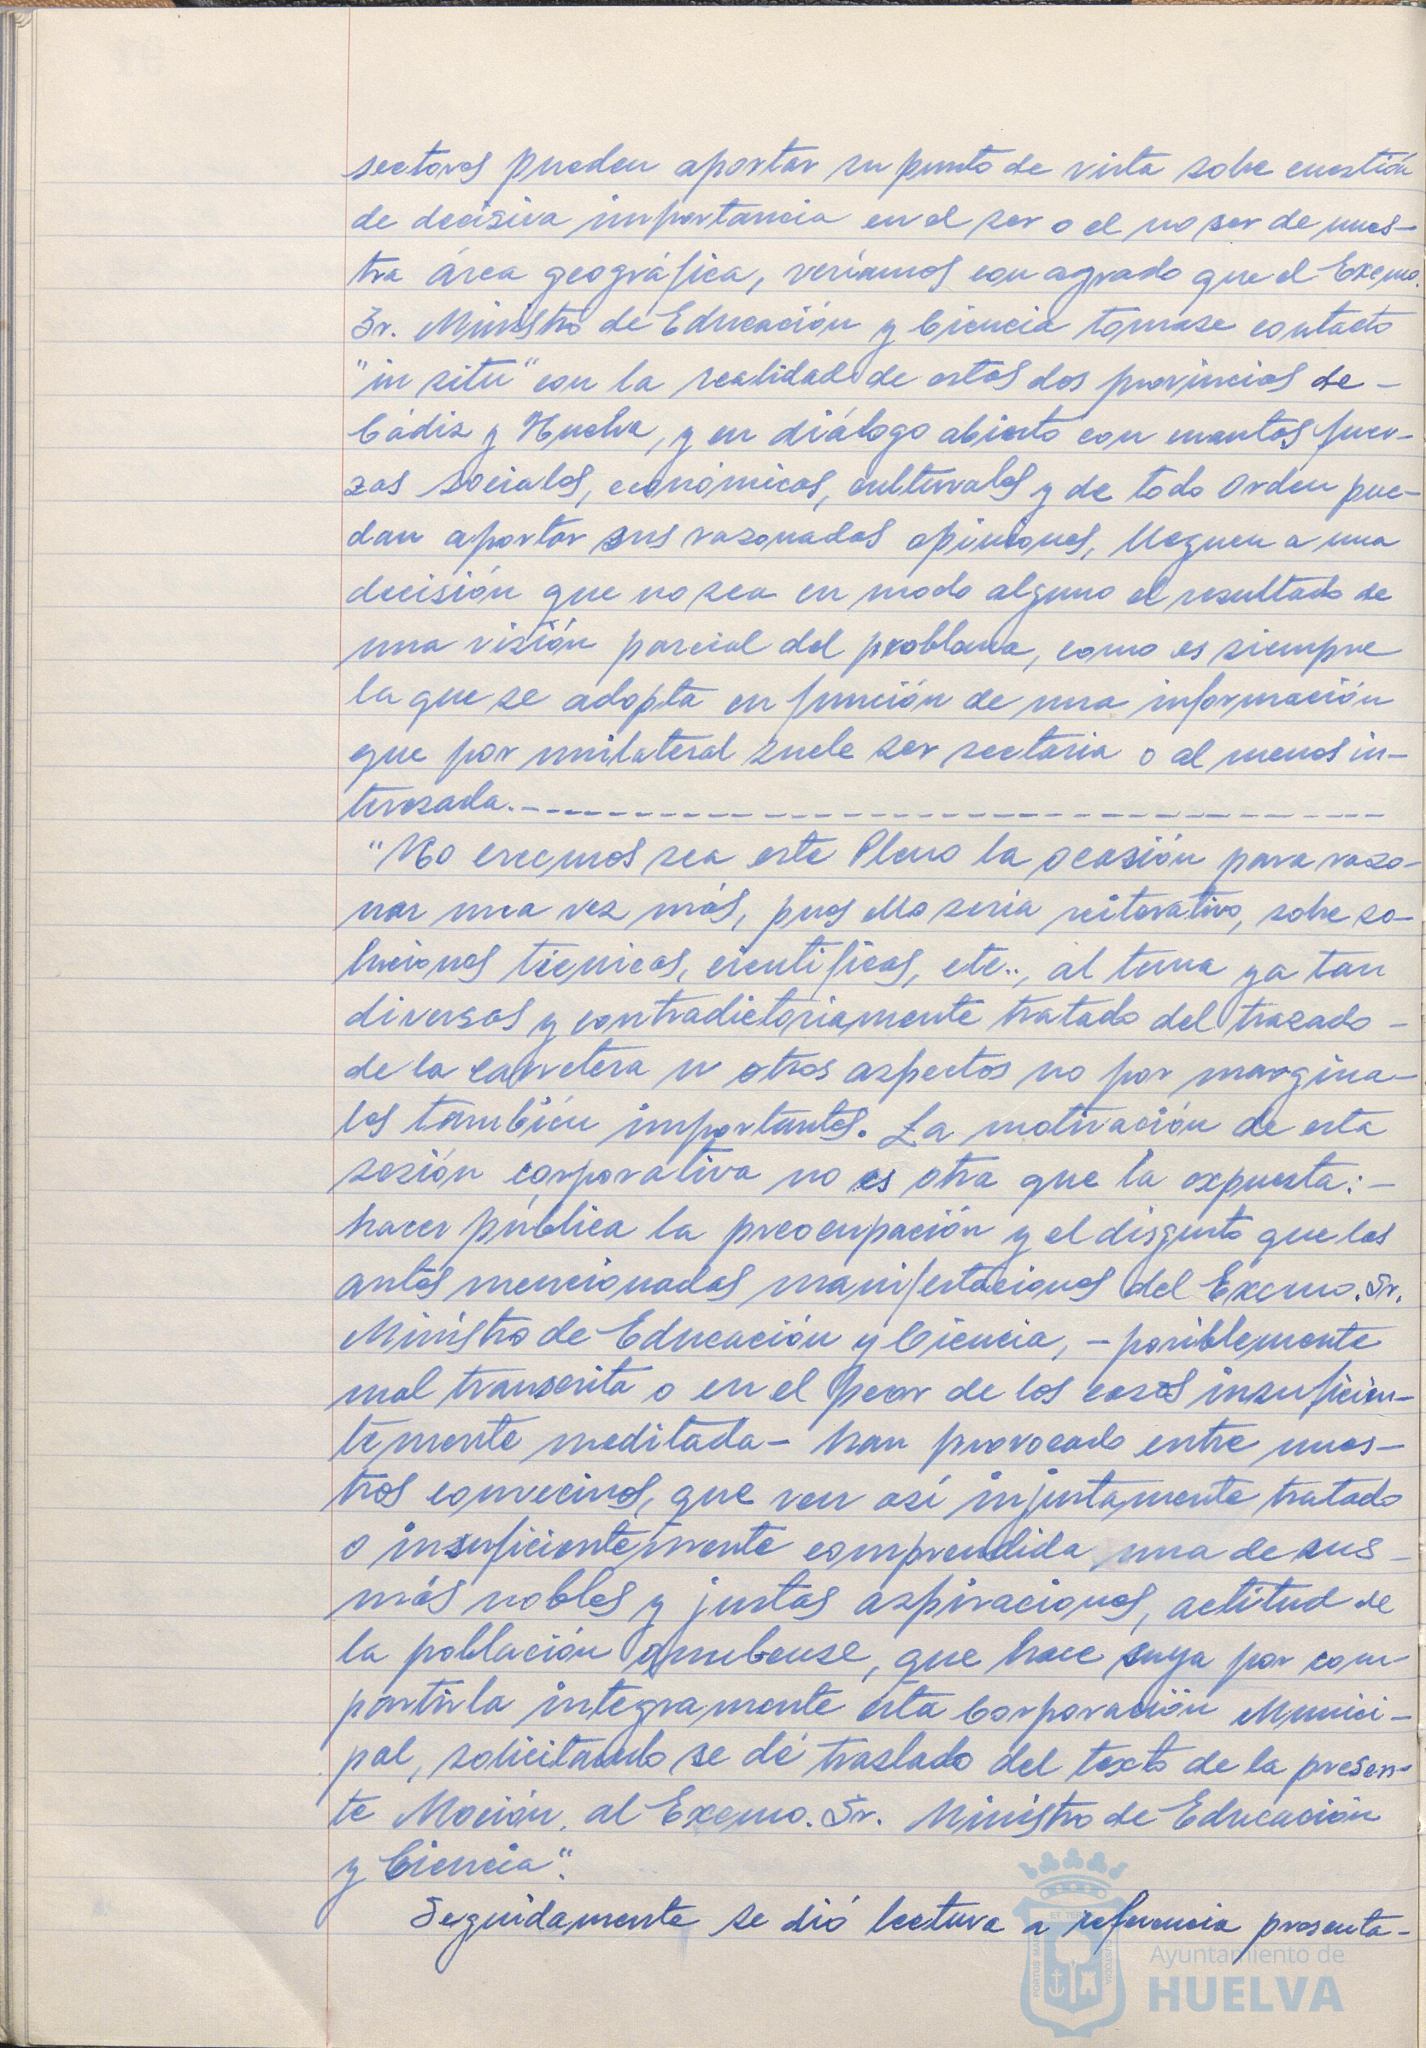 sectores pueden aportar su punto de vista sobre cuestión
de decisiva importancia en el ser o el no ser de nues-
tra área geográfica, veríamos con agrado que el Excmo.
Sr. Ministro de Educación y Ciencia tomase contacto
"in situ" con la realidad de estas dos provincias de -
Cádiz y Huelva, y en diálogo abierto con cuantas fuer-
zas sociales, económicas, culturales y de todo orden pue-
dan aportar sus razonadas opiniones, lleguen a una
decisión que no sea en modo alguno el resultado de
una visión parcial del problema, como es siempre
la que se adopta en función de una información
que por unilateral suele ser sectaria o al menos in-
teresada.-------------------------------
"No creemos sea este Pleno la ocasión para razo-
nar una vez más, pues ello sería reiterativo, sobre so-
luciones técnicas, científicas, etc.., al tema ya tan
diversas y contradictoriamente tratado del trazado -
de la carretera u otros aspectos no por margina-
les también importantes. La motivación de esta
sesión corporativa no es otra que la expuesta: -
hacer pública la preocupación y el disgusto que las
antes mencionadas manifestaciones del Excmo. Sr.
Ministro de Educación y Ciencia, - posiblemente
mal transcrita o en el peor de los casos insuficien-
temente meditada - han provocado entre nues-
tros convecinos, que ven así injustamente tratada
o insuficientemente comprendida una de sus -
más nobles y justas aspiraciones, actitud de
la población onubense, que hace suya por com-
partirla integramente esta Corporación Munici-
pal, solicitando se dé traslado del texto de la presen-
te Moción, al Excmo. Sr. Ministro de Educación
y Ciencia".
Seguidamente se dió lectura a referencia presenta-
PORTUS MARIS ET TERRAE CUSTODIA
Ayuntamiento de
HUELVA